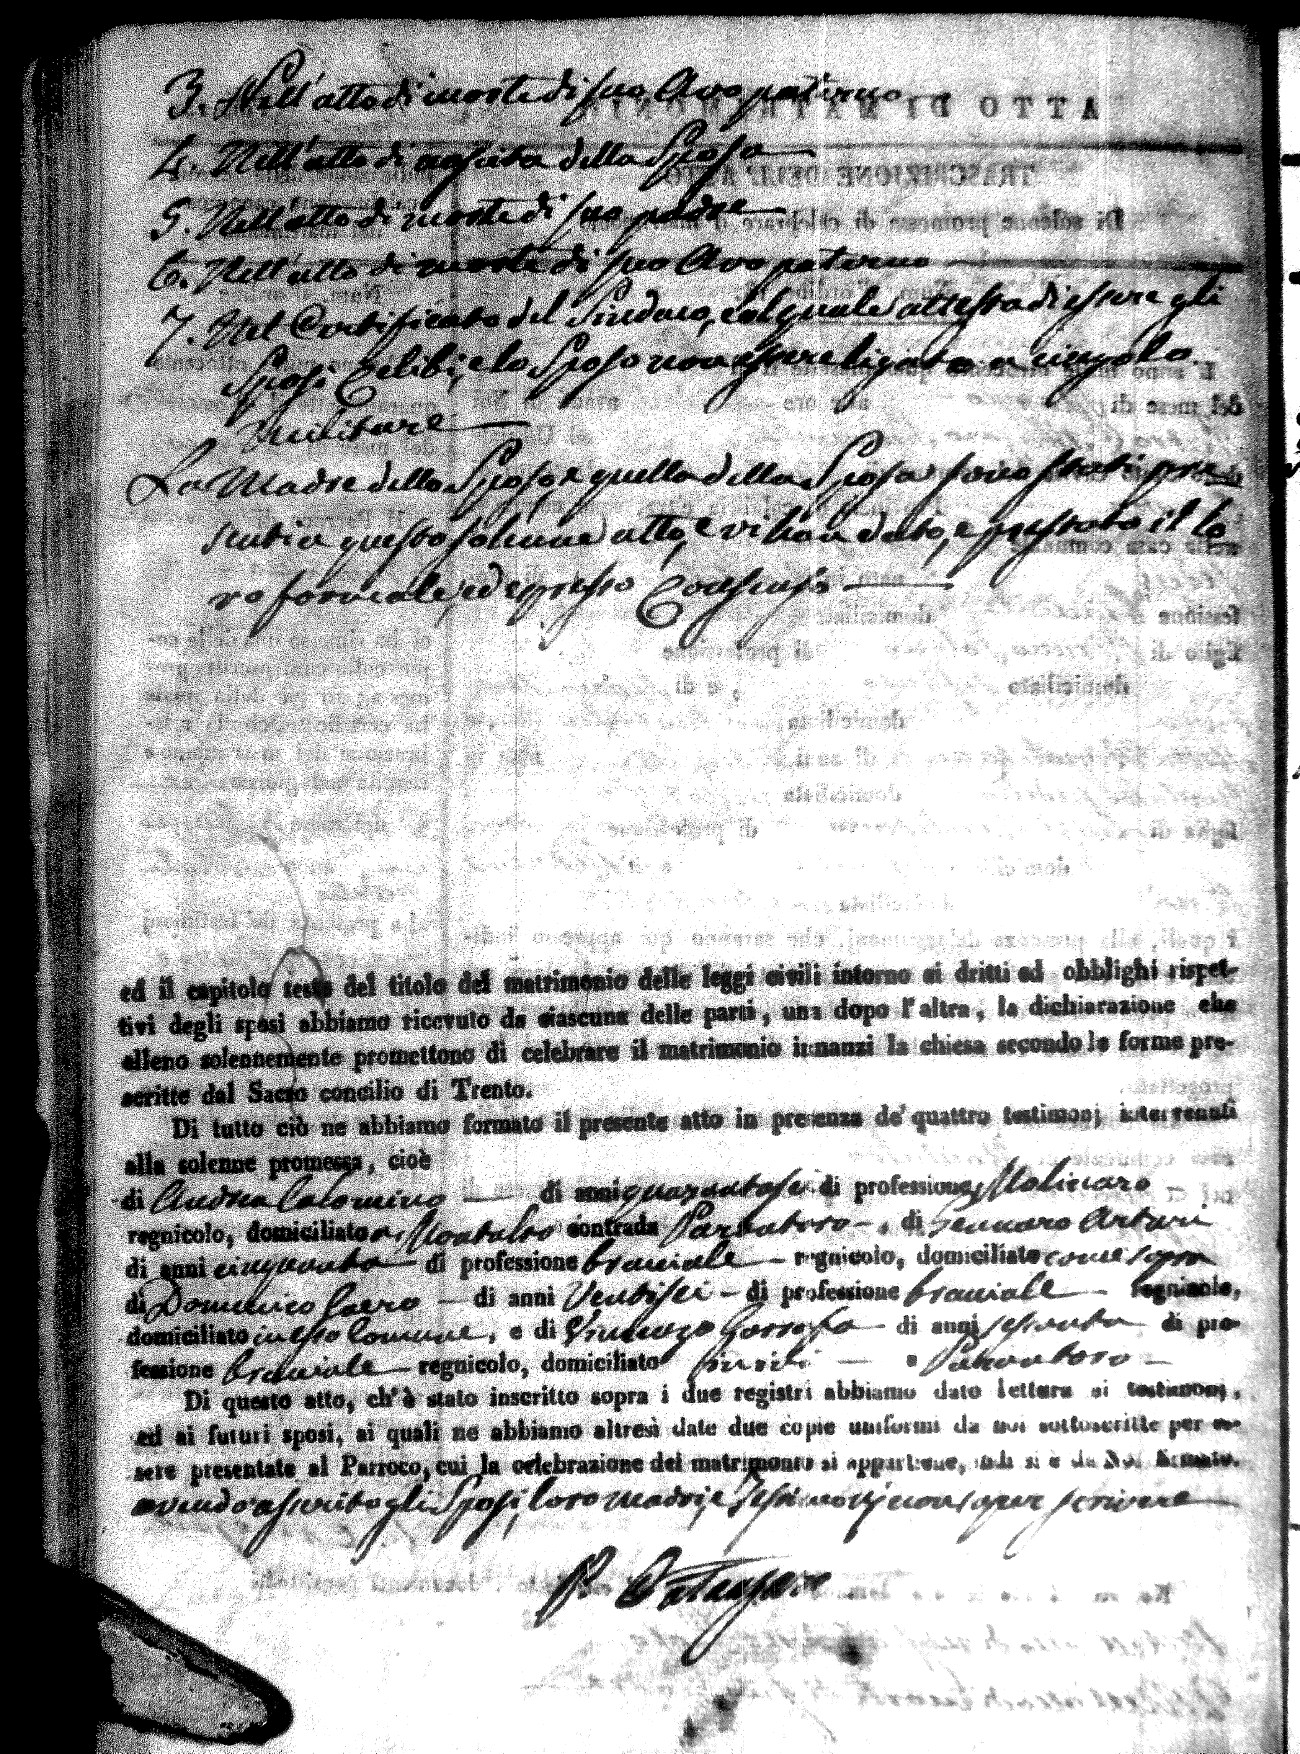 3. Nell'atto di morte di suo Avo paterno
4. Nell'atto di nascita della Sposa
5. Nell'atto di morte di suo padre
6. Nell'atto di morte di suo Avo paterno
7. Nel Certificato del Sindaco, col quale attesta di essere gli
Sposi Celibi, e lo Sposo non essere ligato a cingolo
militare
La Madre dello Sposo, e quella della Sposa sono stati pre
senti a questo solenne atto, e vi han dato, e prestato il lo
ro formale, ed espresso Consenso
ed il capitolo sesto del titolo del matrimonio delle leggi civili intorno ai dritti ed obblighi rispet-
tivi degli sposi abbiamo ricevuto da ciascuna delle parti, una dopo l'altra, la dichiarazione che
elleno solennemente promettono di celebrare il matrimonio innanzi la chiesa secondo le forme pre-
scritte dal Sacro concilio di Trento.
Di tutto ciò ne abbiamo formato il presente atto in presenza de' quattro testimonj intervenuti
alla solenne promessa, cioè
di Andrea Colomino di anni quarantasei di professione Molinaro
regnicolo, domiciliato in Montalto contrada Parantoro, di Gennaro Arturi
di anni cinquanta di professione braciale regnicolo, domiciliato come sopra
di Domenico Gaero di anni Ventisei di professione braciale regnicolo,
domiciliato in esso Comune, e di Vincenzo di anni sessanta di pro-
fessione braciale regnicolo, domiciliato ivi Parantoro
Di questo atto, ch'è stato inscritto sopra i due registri abbiamo dato lettura ai testimonj,
ed ai futuri sposi, ai quali ne abbiamo altresì date due copie uniformi da noi sottoscritte per es-
sere presentate al Parroco, cui la celebrazione del matrimonio si appartiene, indi si è da Noi firmato.
avendo asserito gli Sposi, loro madri, e Testimonj non saper scrivere